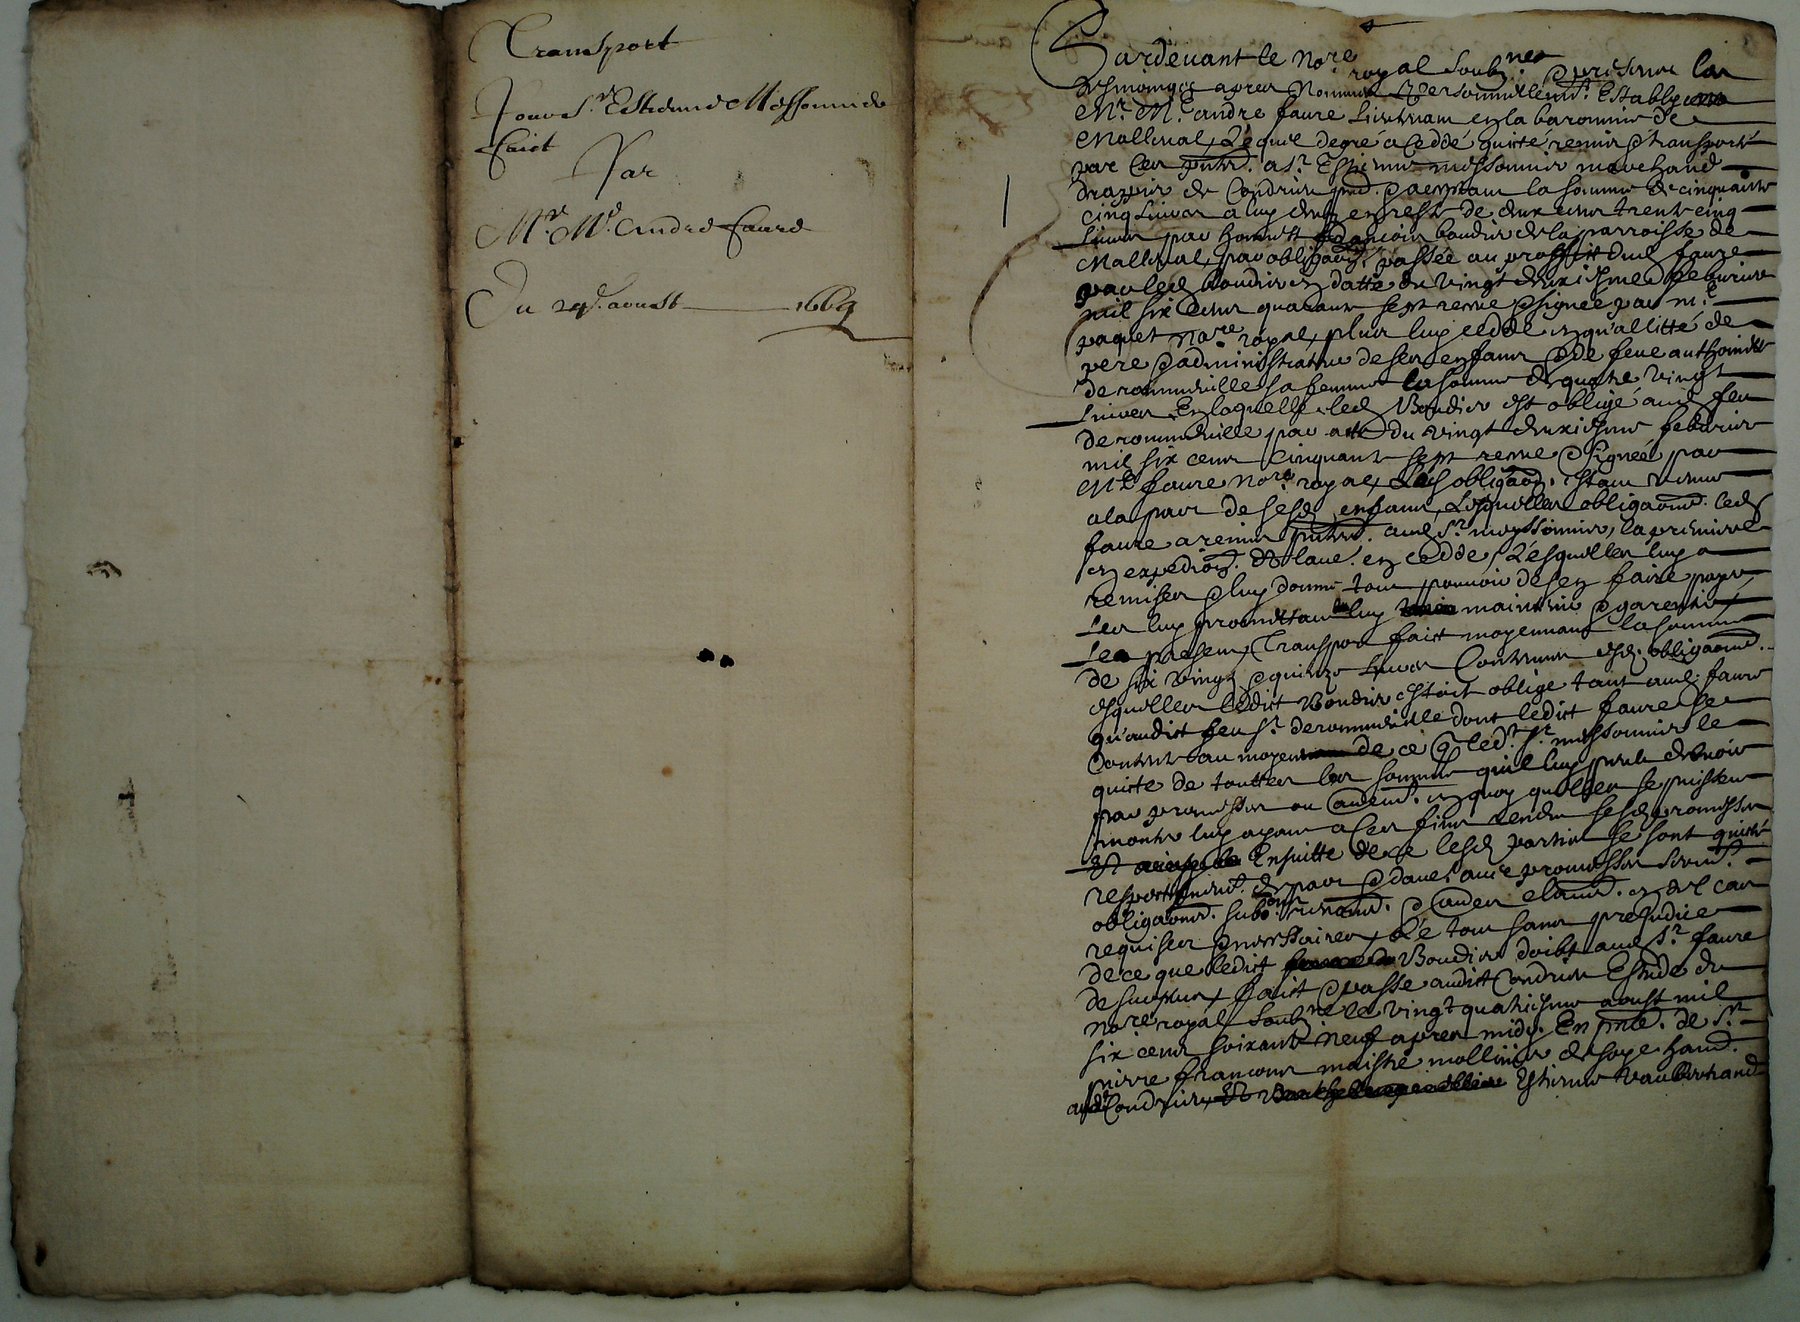 Transport
Pour Sr. Estienne Messonnier
Faict
Par
Mre Me. André Faure
Du 24e. aoust 1669
Pardevant le Nore royal soubzné & presens les
tesmoingts apres nommés personnellemt. estably
Mr. Me. andre faure Lieutenant en la baronnie de
Malleval, Lequel de gré a Ceddé quicté remis & transporté
par ces pntes. a Sr. Estienne messonnier marchand
drapier de Condrieu pnt. & acceptant la somme de cinquante
cinq livres a luy deue en reste de deux cens trente cinq
livres par honneste françois boudier de la parroisse de
Malleval, par obligaon. passée au proffict dud. faure
par led. boudier en datte du vingt deuxiesme febvrier
mil six cens quarante sept receue & signée par me.
paquet Nore. royal, plus luy cedde en qualitté de
pere & administrateur de ses enfans & de feue anthoinette
de rommeville sa femme la somme de quatre vingt
livres En laquelle led. Boudier est obligé aud. feu
de rommeville par acte du vingt deuxiesme febvrier
mil six cens cinquante sept receue & signée par
Me. faure Nore. royal, lad. obligaon. estant venue
a la part de sesd. enfans, Lesquelles obligaons. led.
faure a remis pntemt. aud. Sr. messonnier, la premiere
en expedion. & l'autre en cedde, Lesquelles luy a
remises & luy donne tout pouvoir de s'en faire payer,
Les luy promettant luy maintenir & garentir,
Le present Transport faict moyennant la somme
de six vingt & quinze livres Contenue esd. obligaons.
esquelles ledict Boudier estoit obligé tant aud. faure
qu'audict feu Sr. de rommeville dont ledict faure se
contente au moyen de ce q. ledt. Sr. messonnier le
quicte de touttes les sommes qu'il luy peult debvoir
par promesses ou autremt. en quoy qu'elles se puissent
monter luy ayant a ces fins rendu sesd. promesses
Et Ensuitte de ce lesd. parties se sont quicté
respectivemt. de part & d'autre, avec promesses sermt.
obligaons. submons. renons. & autres clauses en tel cas
requises & necessaires, Le tout sans prejudice
de ce que ledict Boudier doibt aud. Sr. faure
de surplus, faict & passé audict Condrieu Estude du
Nore royal soubzné le vingt quatriesme aoust mil
six cens soixante neuf apres midy. En pnce. de Sr.
pierre francoux maistre mollinier de soye hant.
aud. Condrieu, Et Estienne Vaubertrand